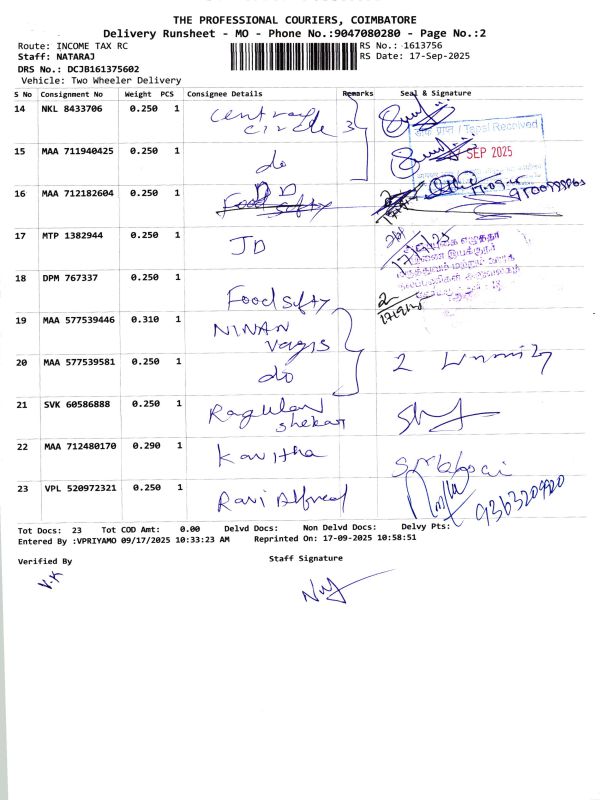 THE PROFESSIONAL COURIERS, COIMBATORE
Delivery Runsheet - MO - Phone No.:9047080280 - Page No.:2
Route: INCOME TAX RC
RS No.: 1613756
Staff: NATARAJ
RS Date: 17-Sep-2025
DRS No.: DCJB161375602
Vehicle: Two Wheeler Delivery
S No Consignment No Weight PCS Consignee Details Remarks Seal & Signature
14 NKL 8433706 0.250 1 central circle 3
Tapal Received
15 MAA 711940425 0.250 1 do
SEP 2025
16 MAA 712182604 0.250 1 Food Safty
17 MTP 1382944 0.250 1 JD
17/9/25
18 DPM 767337 0.250 1 Food Safty
2
17/9/25
19 MAA 577539446 0.310 1 NINAN
20 MAA 577539581 0.250 1 do 2
21 SVK 60586888 0.250 1 Ragulan shekar
22 MAA 712480170 0.290 1 Kavitha
23 VPL 520972321 0.250 1 Ravi
Tot Docs: 23 Tot COD Amt: 0.00 Delvd Docs: Non Delvd Docs: Delvy Pts:
Entered By :VPRIYAMO 09/17/2025 10:33:23 AM Reprinted On: 17-09-2025 10:58:51
Verified By
Staff Signature
V.K